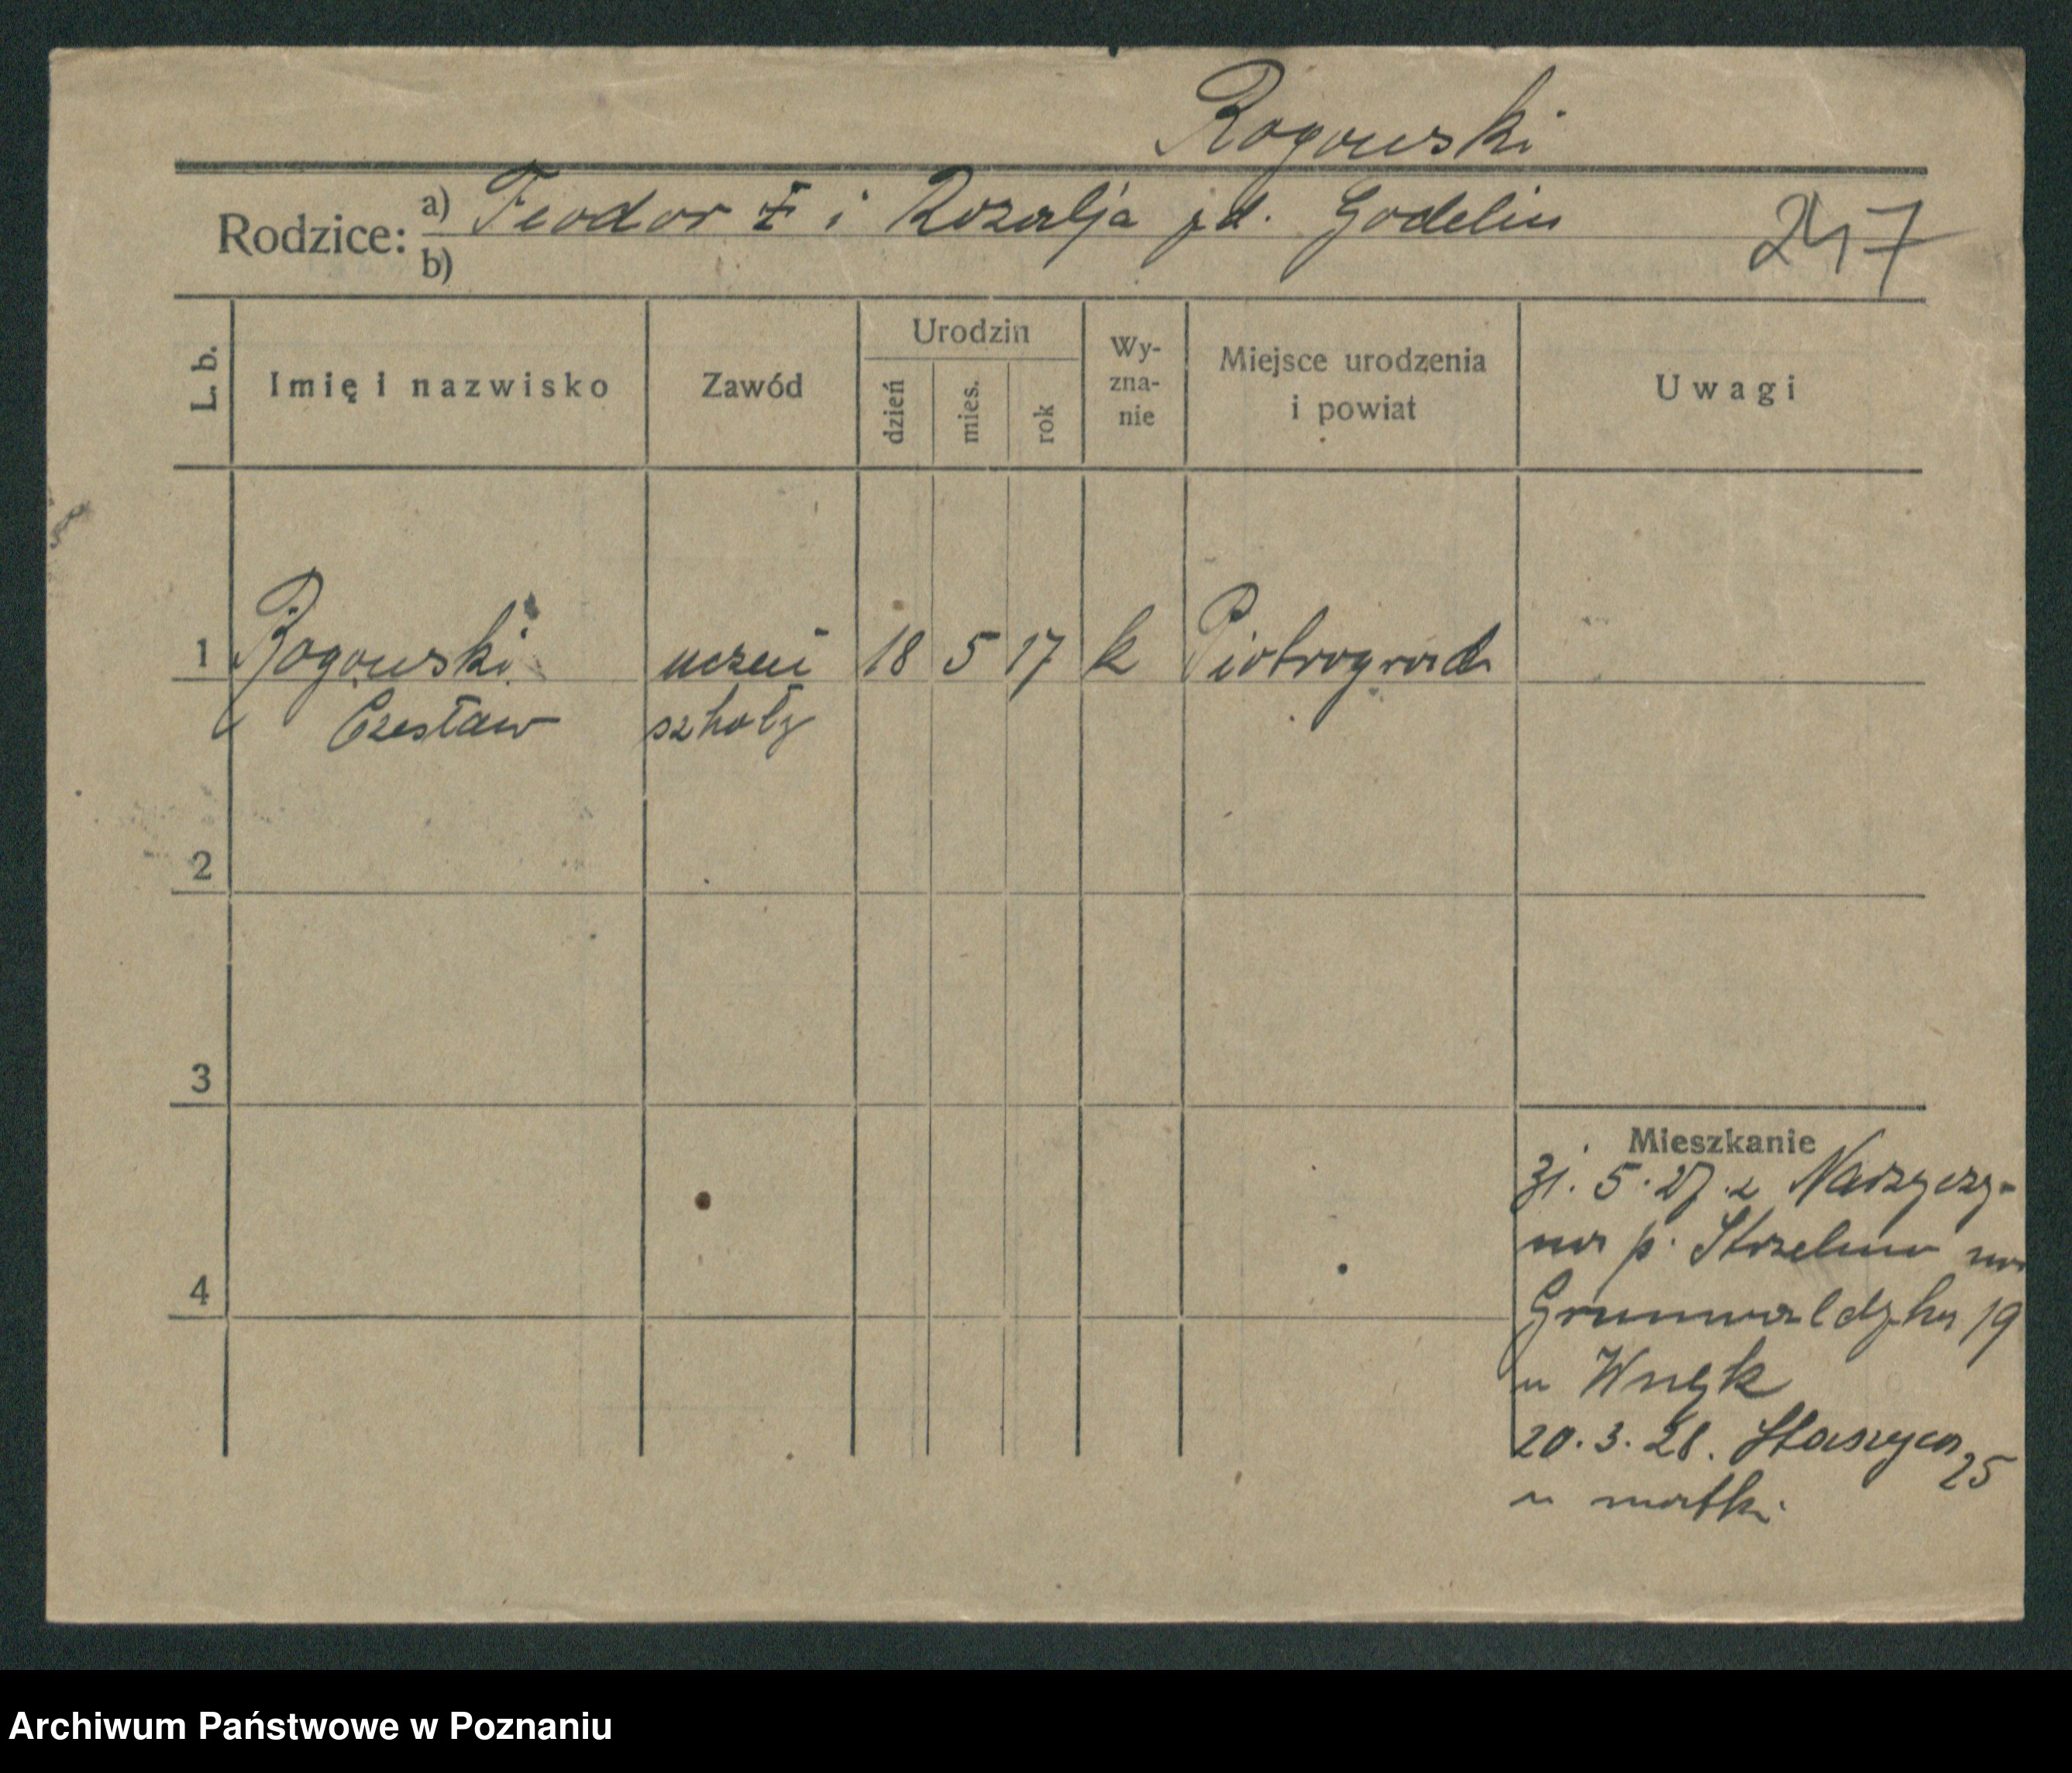 Rogowski
Rodzice: a) Teodor ‡ i Rozalja zd. Godelin
b)
247
L. b.
Imię i nazwisko
Zawód
Urodzin
dzień
mies.
rok
Wy-
zna-
nie
Miejsce urodzenia
i powiat
Uwagi
1 Rogowski uczeń 18 5 17 k Piotrograd
Czesław szkoły
2
3
4
Mieszkanie
31. 5. 27. z
p. Strzelno na
Grunwaldzka 19
u Wnęk
20. 3. 28. Staszyca 25
u matki
Archiwum Państwowe w Poznaniu